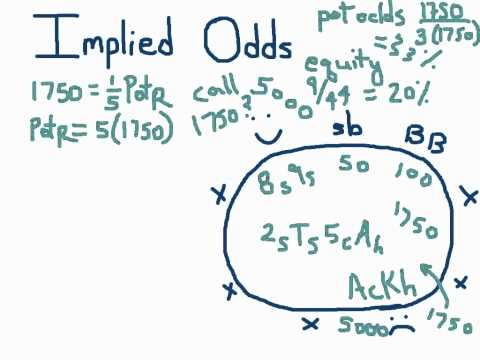 Implied Odds
pot odds 1750/3(1750)
= 33%
equity
9/44 = 20%
1750 = 1/5 PotR
call 5000
PotR = 5(1750)
1750?
sb
BB
8s9s
50
100
X
X
2sTs5cAh
1750
AcKh
X
X
X
5000
1750